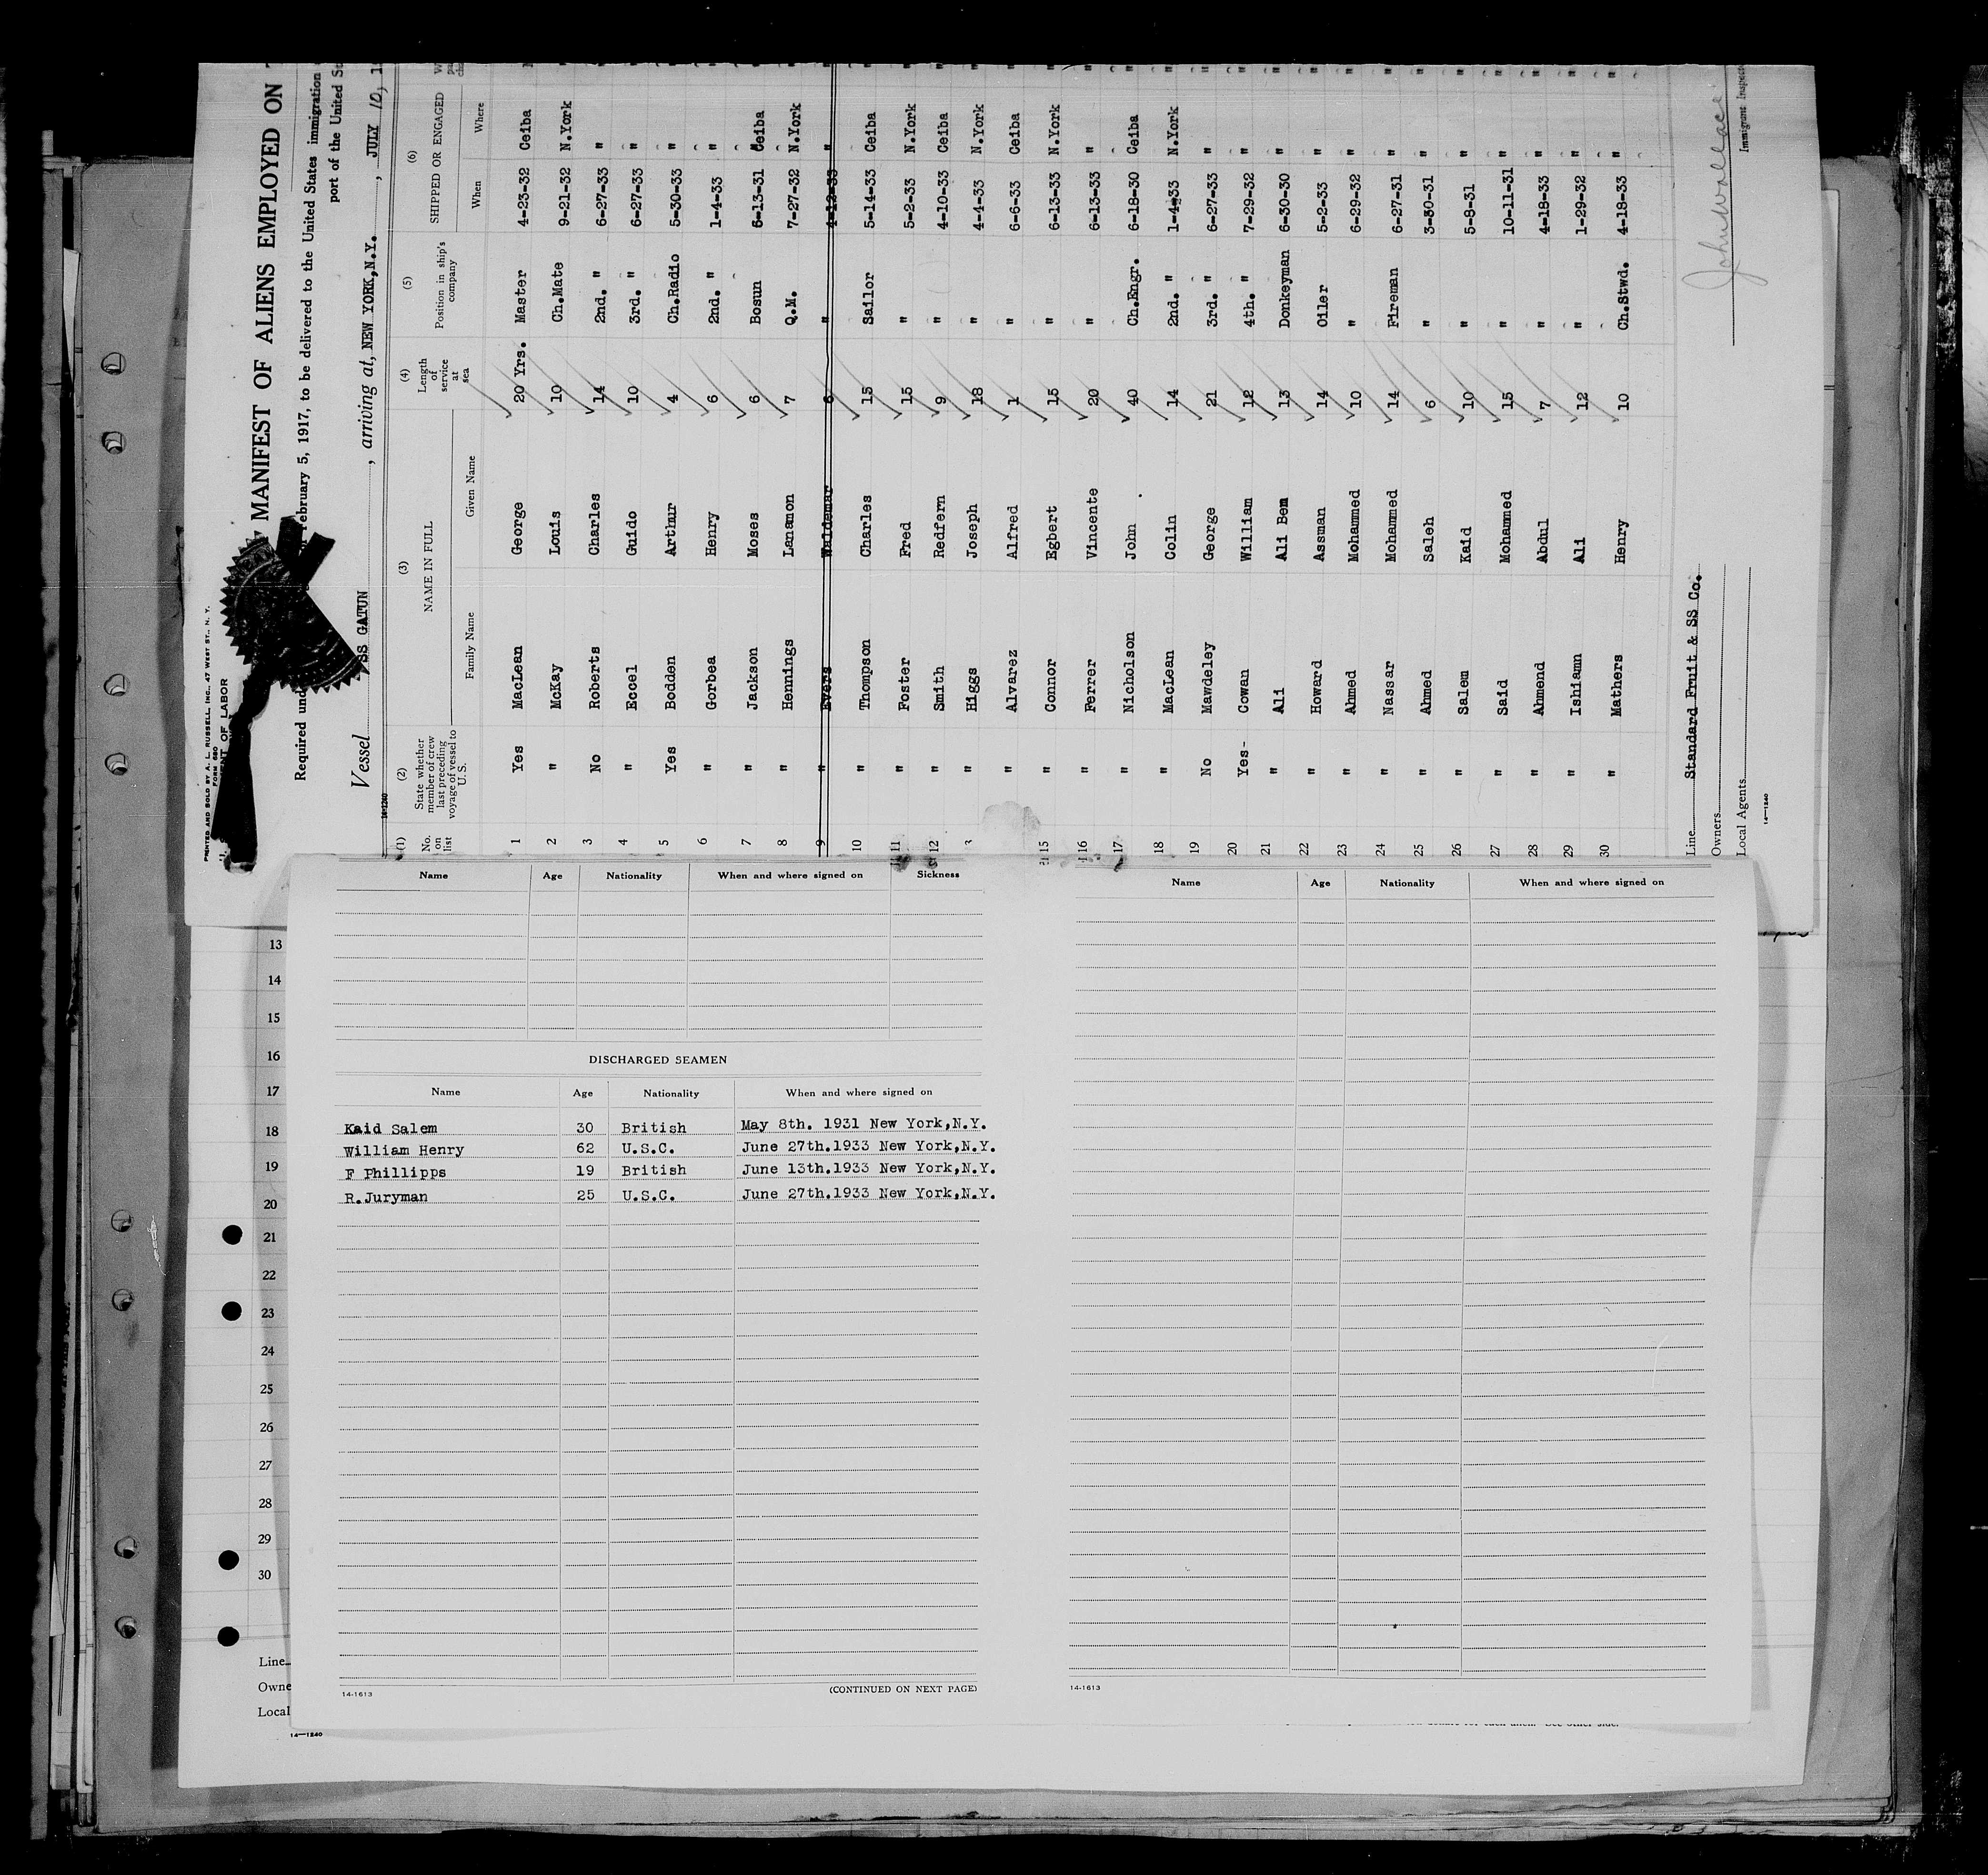 PRINTED AND SOLD BY A. L. RUSSELL, INC., 47 WEST ST., N. Y.
FORM 680
OF LABOR
MANIFEST OF ALIENS EMPLOYED ON
Required und
February 5, 1917, to be delivered to the United States immigration
port of the United St
Vessel SS GATUN , arriving at, NEW YORK,N.Y. , JULY 10,
14-1240
(1) (2) (3) (4) (5) (6)
No. on list State whether member of crew last preceding voyage of vessel to U. S. NAME IN FULL Length of service at sea Position in ship's company SHIPPED OR ENGAGED
Family Name Given Name When Where
1 Yes MacLean George 20 Yrs. Master 4-23-32 Ceiba
2 " McKay Louis 10 Ch.Mate 9-21-32 N.York "
3 No Roberts Charles 14 2nd. " 6-27-33 " "
4 " Eccel Guido 10 3rd. " 6-27-33 " "
5 Yes Bodden Arthur 4 Ch.Radio 5-30-33 " "
6 " Gorbea Henry 6 2nd. " 1-4-33 " "
7 " Jackson Moses 6 Bosun 6-13-31 Ceiba "
8 " Hennings Lanamon 7 Q.M. 7-27-32 N.York "
9 " Evers Waldemar 6 " 4-12-33 " "
10 " Thompson Charles 15 Sailor 5-14-33 Ceiba "
11 " Foster Fred 15 " 5-2-33 N.York "
12 " Smith Redfern 9 " 4-10-33 Ceiba "
3 " Higgs Joseph 18 " 4-4-33 N.York "
" Alvarez Alfred 1 " 6-6-33 Ceiba "
15 " Connor Egbert 15 " 6-13-33 N.York "
16 " Ferrer Vincente 20 " 6-13-33 " "
17 " Nicholson John 40 Ch.Engr. 6-18-30 Ceiba "
18 " MacLean Colin 14 2nd. " 1-4-33 N.York "
19 No Mawdeley George 21 3rd. " 6-27-33 " "
20 Yes- Cowan William 12 4th. " 7-29-32 " "
21 " Ali Ali Bem 13 Donkeyman 6-30-30 " "
22 " Howard Assman 14 Oiler 5-2-33 " "
23 " Ahmed Mohammed 10 " 6-29-32 " "
24 " Nassar Mohammed 14 Fireman 6-27-31 " "
25 " Ahmed Saleh 6 " 3-30-31 " "
26 " Salem Kaid 10 " 5-8-31 " "
27 " Said Mohammed 15 " 10-11-31 " "
28 " Ahmend Abdul 7 " 4-18-33 " "
29 " Ishiamn Ali 12 " 1-29-32 " "
30 " Mathers Henry 10 Ch.Stwd. 4-18-33 " "
Line Standard Fruit & SS Co.
Owners
Local Agents
14-1240
John Wallace
Immigrant Inspec
Name Age Nationality When and where signed on Sickness
DISCHARGED SEAMEN
Name Age Nationality When and where signed on
Kaid Salem 30 British May 8th. 1931 New York,N.Y.
William Henry 62 U.S.C. June 27th.1933 New York,N.Y.
F Phillipps 19 British June 13th.1933 New York,N.Y.
R.Juryman 25 U.S.C. June 27th.1933 New York,N.Y.
14-1613 (CONTINUED ON NEXT PAGE)
Name Age Nationality When and where signed on
14-1613
13
14
15
16
17
18
19
20
21
22
23
24
25
26
27
28
29
30
Line
Owne
Local
14-1240
See other side.